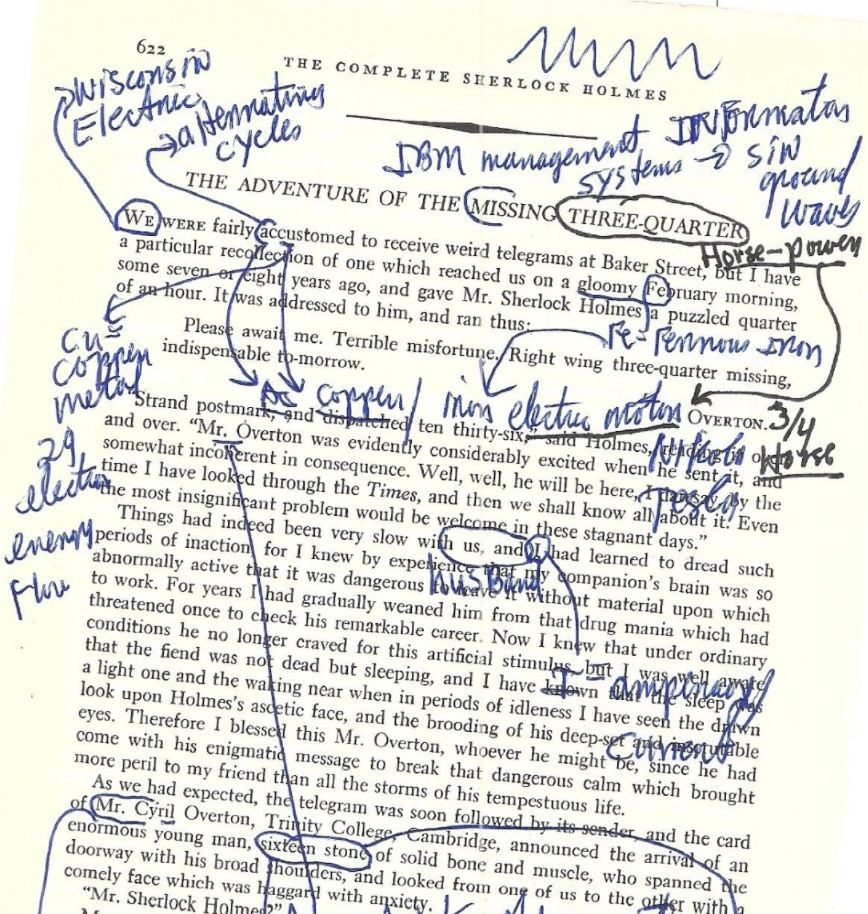 622
THE COMPLETE SHERLOCK HOLMES
Wisconsin
Electric
alternating
cycles
IBM management
systems → sin
ground
waves
THE ADVENTURE OF THE MISSING THREE-QUARTER
Horse-power
WE WERE fairly accustomed to receive weird telegrams at Baker Street, but I have
a particular recollection of one which reached us on a gloomy February morning,
some seven or eight years ago, and gave Mr. Sherlock Holmes a puzzled quarter
of an hour. It was addressed to him, and ran thus:
Fe- Ferrous Iron
Please await me. Terrible misfortune. Right wing three-quarter missing,
indispensable to-morrow.
Cu=
copper
metal
AC copper/ iron electric motor
OVERTON.
3/4
Horse
Strand postmark, and dispatched ten thirty-six," said Holmes, reading it over
and over. "Mr. Overton was evidently considerably excited when he sent it, and
somewhat incoherent in consequence. Well, well, he will be here, I daresay, by the
time I have looked through the Times, and then we shall know all about it. Even
the most insignificant problem would be welcome in these stagnant days."
Nikola
Tesla
29
electron
energy
flow
Things had indeed been very slow with us, and I had learned to dread such
periods of inaction, for I knew by experience that my companion's brain was so
abnormally active that it was dangerous to leave it without material upon which
to work. For years I had gradually weaned him from that drug mania which had
threatened once to check his remarkable career. Now I knew that under ordinary
conditions he no longer craved for this artificial stimulus, but I was well aware
that the fiend was not dead but sleeping, and I have known that the sleep was
a light one and the waking near when in periods of idleness I have seen the drawn
look upon Holmes's ascetic face, and the brooding of his deep-set and inscrutable
eyes. Therefore I blessed this Mr. Overton, whoever he might be, since he had
come with his enigmatic message to break that dangerous calm which brought
more peril to my friend than all the storms of his tempestuous life.
husband
I-
current
As we had expected, the telegram was soon followed by its sender, and the card
of Mr. Cyril Overton, Trinity College, Cambridge, announced the arrival of an
enormous young man, sixteen stone of solid bone and muscle, who spanned the
doorway with his broad shoulders, and looked from one of us to the other with a
comely face which was haggard with anxiety.
"Mr. Sherlock Holmes?"